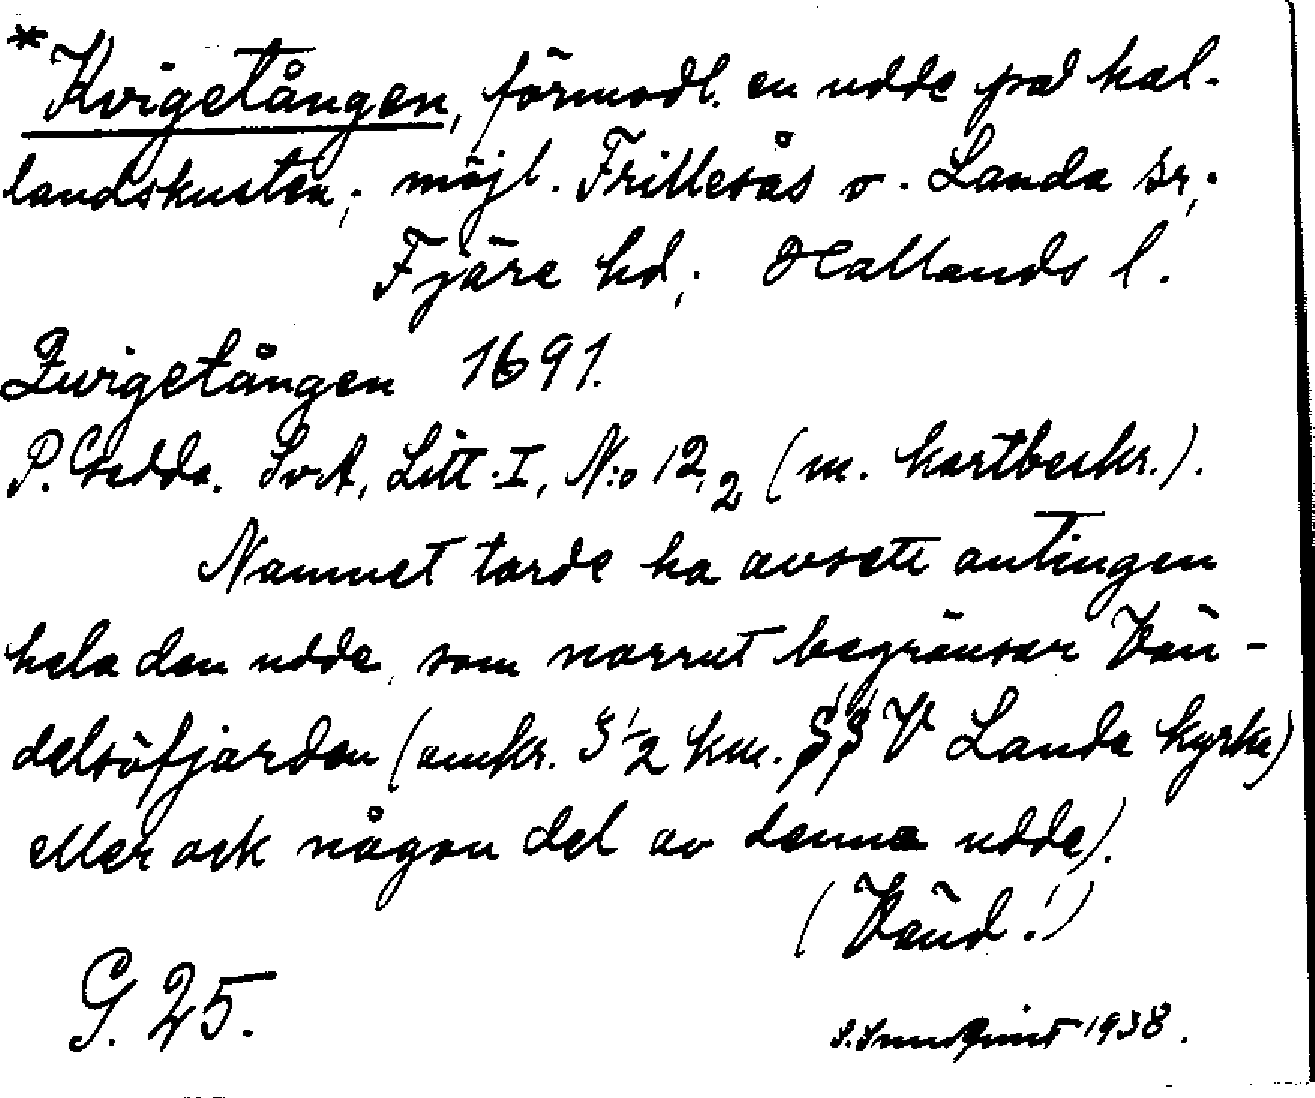 *Kvigetången, förmodl. en udde på hal-
landskusten; möjl. Frillesås o. Landa sr;
Fjäre hd; Hallands l.
Zwigetången 1691.
P. Gedda. SvA, Litt. I, N:o 12,2 (m. kartbeskr.).
Namnet torde ha avsett antingen
hela den udde, som norrut begränsar Vän-
delsöfjorden (omkr. 3 1/2 km. V Landa kyrka)
eller ock någon del av denna udde).
(Vänd!)
G. 25.
1938.